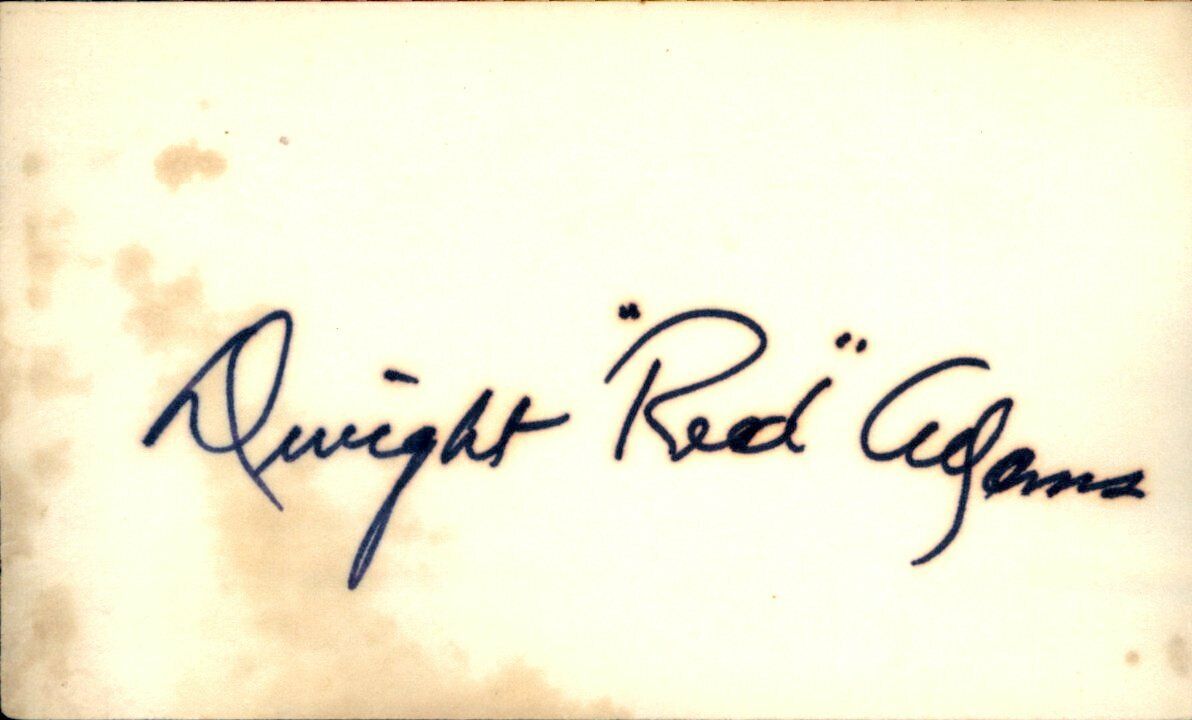 Dwight "Red" Adams